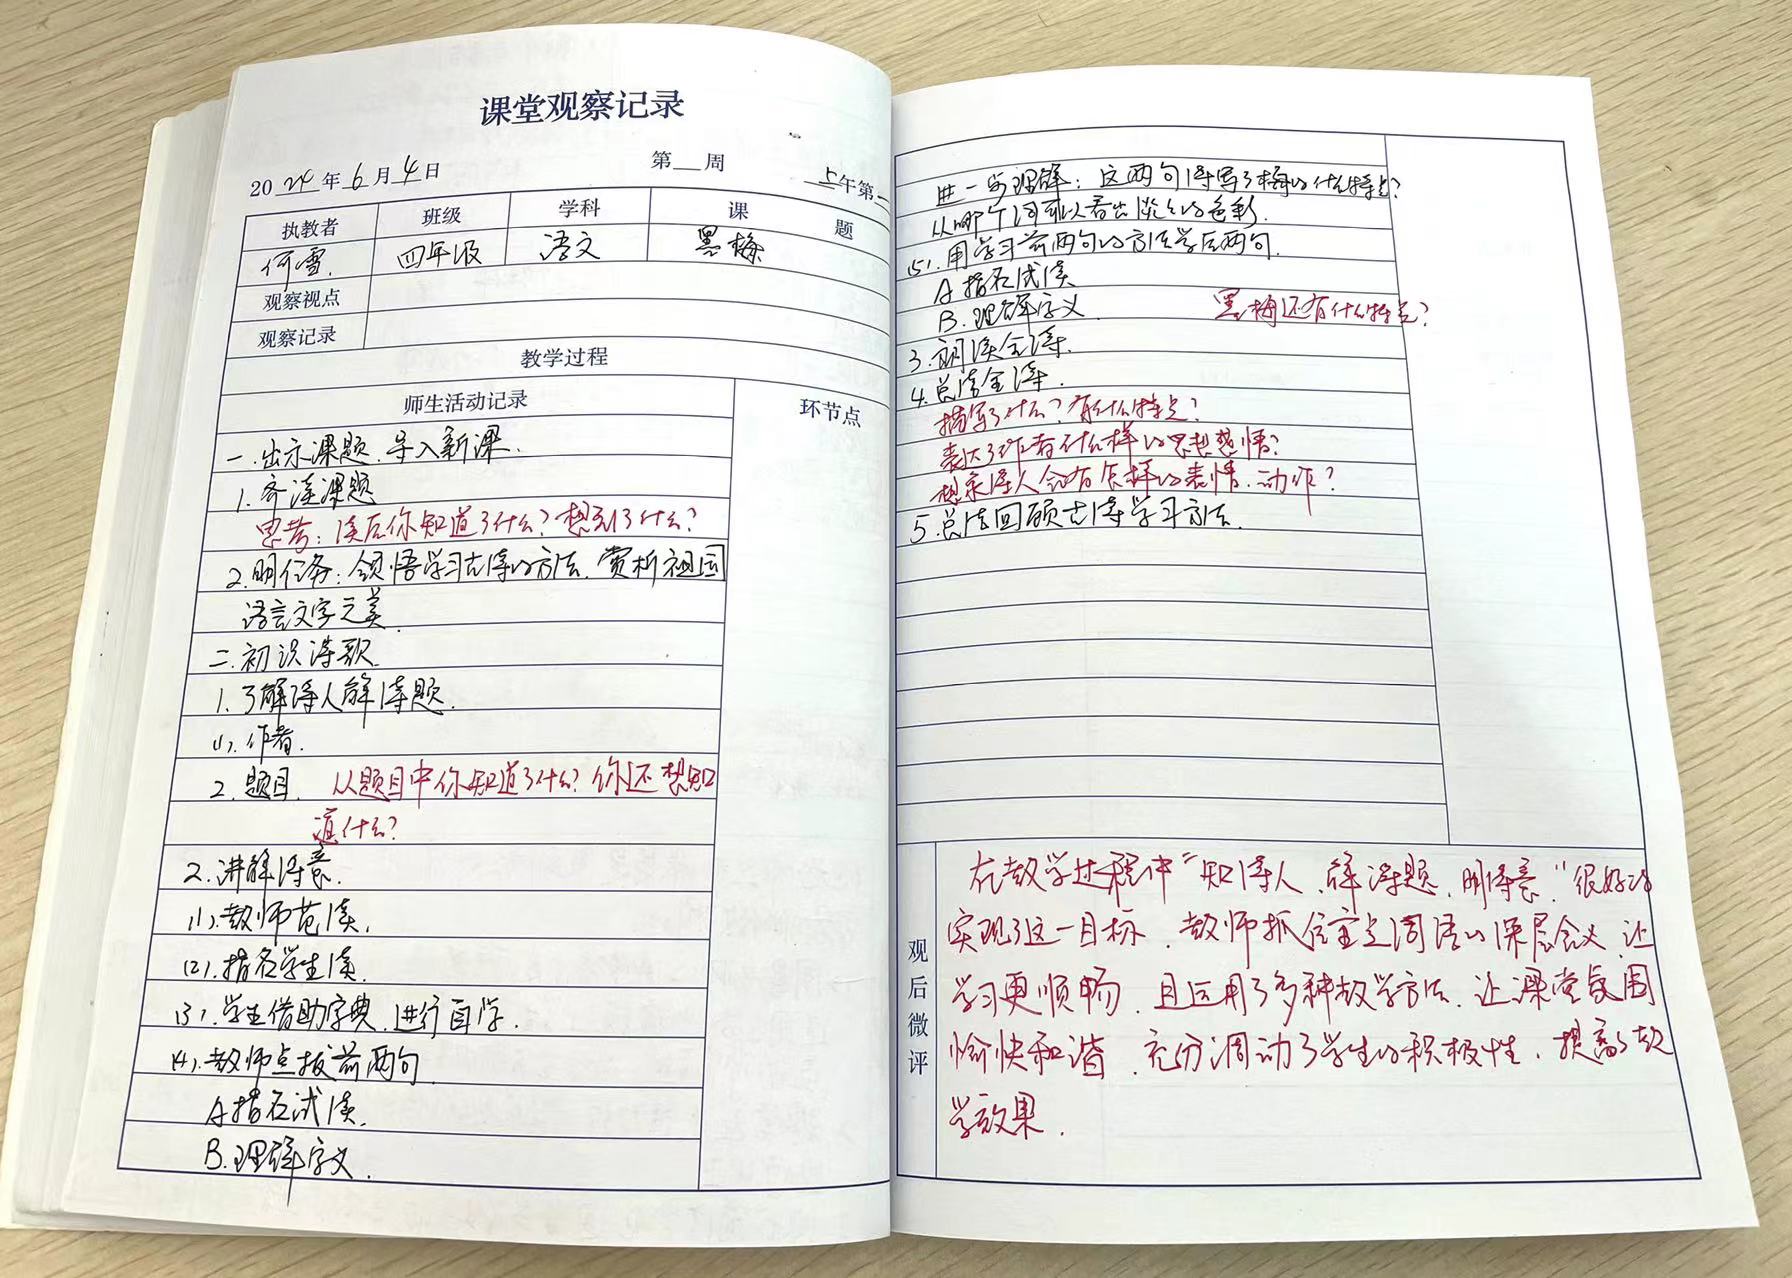 课堂观察记录
2024年6月4日 第 周 上午第
执教者 班级 学科 课 题
何雪. 四年级 语文 墨梅
观察视点
观察记录
教学过程
师生活动记录 环节点
一.出示课题.导入新课.
1.齐读课题
思考:读后你知道了什么?想到了什么?
2.明任务:领悟学习古诗的方法.赏析祖国
语言文字之美.
二.初识诗歌.
1.了解诗人解诗题.
(1).作者.
2.题目. 从题目中你知道了什么?你还想知
道什么?
2.讲解诗意.
(1).教师范读.
(2).指名学生读.
(3).学生借助字典.进行自学.
(4).教师点拔前两句.
A指名试读.
B.理解字义.
进一步理解:这两句诗写了梅的什么特点?
从哪个词可以看出淡淡的色彩.
(5).用学习前两句的方法学后两句.
A指名试读
B.理解字义. 墨梅还有什么特点?
3.朗读全诗.
4.总结全诗.
描写了什么?有什么特点?
表达了作者什么样的思想感情?
想象诗人会有怎样的表情.动作?
5.总结回顾古诗学习方法.
观后微评
在教学过程中"知诗人.解诗题.明诗意."很好的
实现了这一目标.教师抓住重点词语的深层含义.让
学习更顺畅.且运用了多种教学方法.让课堂氛围
愉快和谐.充分调动了学生的积极性.提高了教
学效果.